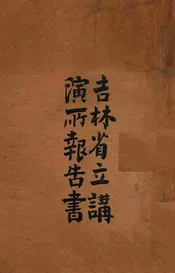 吉林省立講
演所報告書